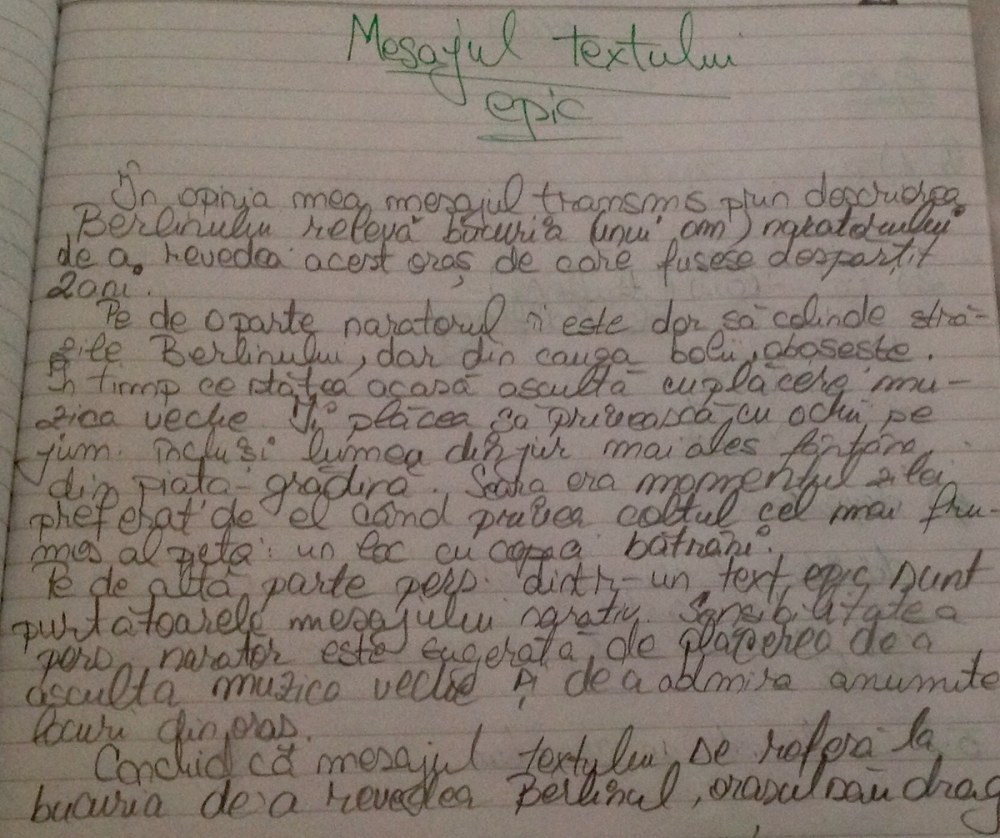 Mesajul textului
epic
În opinia mea mesajul transms prin descrierea
Berlinului relevă bucuria (unui om) naratorului
de a revedea acest oraș de care fusese despărțit
2 ani.
Pe de o parte naratorul îi este dor să colinde stră-
zile Berlinului, dar din cauza bolii, obosește.
În timp ce stătea acasă ascultă cu plăcere mu-
zica veche. Îi plăcea să privească cu ochii pe
jum. incluși lumea din jur mai ales fântâna
din piața-grădină. Seara era momentul zilei
preferat de el când privea colțul cel mai fru-
mos al pieței: un loc cu copaci bătrâni.
Pe de altă parte pers. dintr-un text epic sunt
purtătoarele mesajului narativ. Sensibilitatea
pers. narator este sugerată de plăcerea de a
asculta muzica veche și de a admira anumite
locuri din oraș.
Conchid că mesajul textului se referă la
bucuria de a revedea Berlinul, orașul său drag